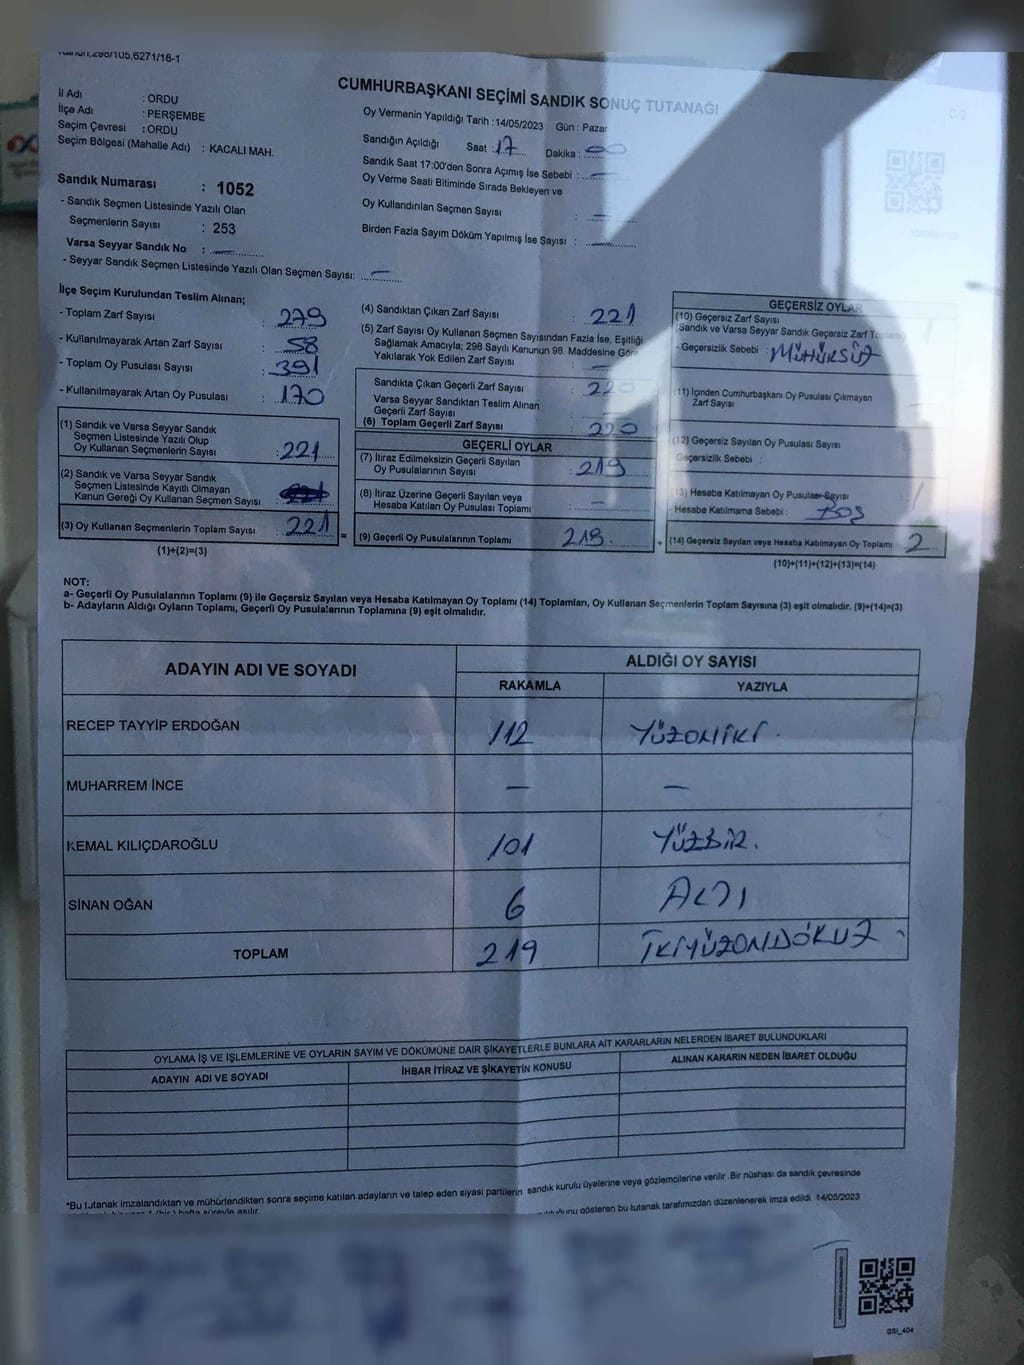 CUMHURBAŞKANI SEÇİMİ SANDIK SONUÇ TUTANAĞI
İl Adı : ORDU
İlçe Adı : PERŞEMBE
Seçim Çevresi : ORDU
Seçim Bölgesi (Mahalle Adı) : KACALI MAH.
Sandık Numarası : 1052
- Sandık Seçmen Listesinde Yazılı Olan
Seçmenlerin Sayısı : 253
Varsa Seyyar Sandık No : —
- Seyyar Sandık Seçmen Listesinde Yazılı Olan Seçmen Sayısı: —
Oy Vermenin Yapıldığı Tarih :14/05/2023 Gün : Pazar
Sandığın Açıldığı Saat : 17 Dakika : 00
Sandık Saat 17:00'den Sonra Açımış İse Sebebi : —
Oy Verme Saati Bitiminde Sırada Bekleyen ve
Oy Kullandırılan Seçmen Sayısı : —
Birden Fazla Sayım Döküm Yapılmış İse Sayısı : —
İlçe Seçim Kurulundan Teslim Alınan;
- Toplam Zarf Sayısı : 279
- Kullanılmayarak Artan Zarf Sayısı : 58
- Toplam Oy Pusulası Sayısı : 391
- Kullanılmayarak Artan Oy Pusulası : 170
(1) Sandık ve Varsa Seyyar Sandık
Seçmen Listesinde Yazılı Olup
Oy Kullanan Seçmenlerin Sayısı : 221
(2) Sandık ve Varsa Seyyar Sandık
Seçmen Listesinde Kayıtlı Olmayan
Kanun Gereği Oy Kullanan Seçmen Sayısı :
(3) Oy Kullanan Seçmenlerin Toplam Sayısı : 221
(1)+(2)=(3)
(4) Sandıktan Çıkan Zarf Sayısı : 221
(5) Zarf Sayısı Oy Kullanan Seçmen Sayısından Fazla İse, Eşitliği
Sağlamak Amacıyla; 298 Sayılı Kanunun 98. Maddesine Göre
Yakılarak Yok Edilen Zarf Sayısı : —
Sandıkta Çıkan Geçerli Zarf Sayısı : 220
Varsa Seyyar Sandıktan Teslim Alınan
Geçerli Zarf Sayısı :
(6) Toplam Geçerli Zarf Sayısı : 220
GEÇERLİ OYLAR
(7) İtiraz Edilmeksizin Geçerli Sayılan
Oy Pusulalarının Sayısı : 219
(8) İtiraz Üzerine Geçerli Sayılan veya
Hesaba Katılan Oy Pusulası Toplamı : —
(9) Geçerli Oy Pusulalarının Toplamı 219.
GEÇERSİZ OYLAR
(10) Geçersiz Zarf Sayısı
Sandık ve Varsa Seyyar Sandık Geçersiz Zarf
- Geçersizlik Sebebi : MÜHÜRSÜZ
(11) İçinden Cumhurbaşkanı Oy Pusulası Çıkmayan
Zarf Sayısı
(12) Geçersiz Sayılan Oy Pusulası Sayısı
Geçersizlik Sebebi :
(13) Hesaba Katılmayan Oy Pusulası Sayısı 1
- Hesaba Katılmama Sebebi : BOŞ
(14) Geçersiz Sayılan veya Hesaba Katılmayan Oy Toplamı 2
(10)+(11)+(12)+(13)=(14)
NOT:
a- Geçerli Oy Pusulalarının Toplamı (9) ile Geçersiz Sayılan veya Hesaba Katılmayan Oy Toplamı (14) Toplamları, Oy Kullanan Seçmenlerin Toplam Sayısına (3) eşit olmalıdır. (9)+(14)=(3)
b- Adayların Aldığı Oyların Toplamı, Geçerli Oy Pusulalarının Toplamına (9) eşit olmalıdır.
ADAYIN ADI VE SOYADI ALDIĞI OY SAYISI
RAKAMLA YAZIYLA
RECEP TAYYİP ERDOĞAN 112 YÜZONİKİ.
MUHARREM İNCE — —
KEMAL KILIÇDAROĞLU 101 YÜZBİR.
SİNAN OĞAN 6 ALTI
TOPLAM 219 İKİYÜZONDOKUZ
OYLAMA İŞ VE İŞLEMLERİNE VE OYLARIN SAYIM VE DÖKÜMÜNE DAİR ŞİKAYETLERLE BUNLARA AİT KARARLARIN NELERDEN İBARET BULUNDUKLARI
ADAYIN ADI VE SOYADI İHBAR İTİRAZ VE ŞİKAYETİN KONUSU ALINAN KARARIN NEDEN İBARET OLDUĞU
*Bu tutanak imzalandıktan ve mühürlendikten sonra seçime katılan adayların ve talep eden siyasi partilerin sandık kurulu üyelerine veya gözlemcilerine verilir .Bir nüshası da sandık çevresinde
gösteren bu tutanak tarafımızdan düzenlenerek imza edildi 14/05/2023
SSI_404